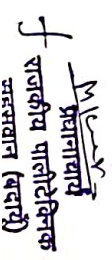 प्रधानाचार्य
राजकीय पालिटेक्निक
सहसवान (बदायूँ)